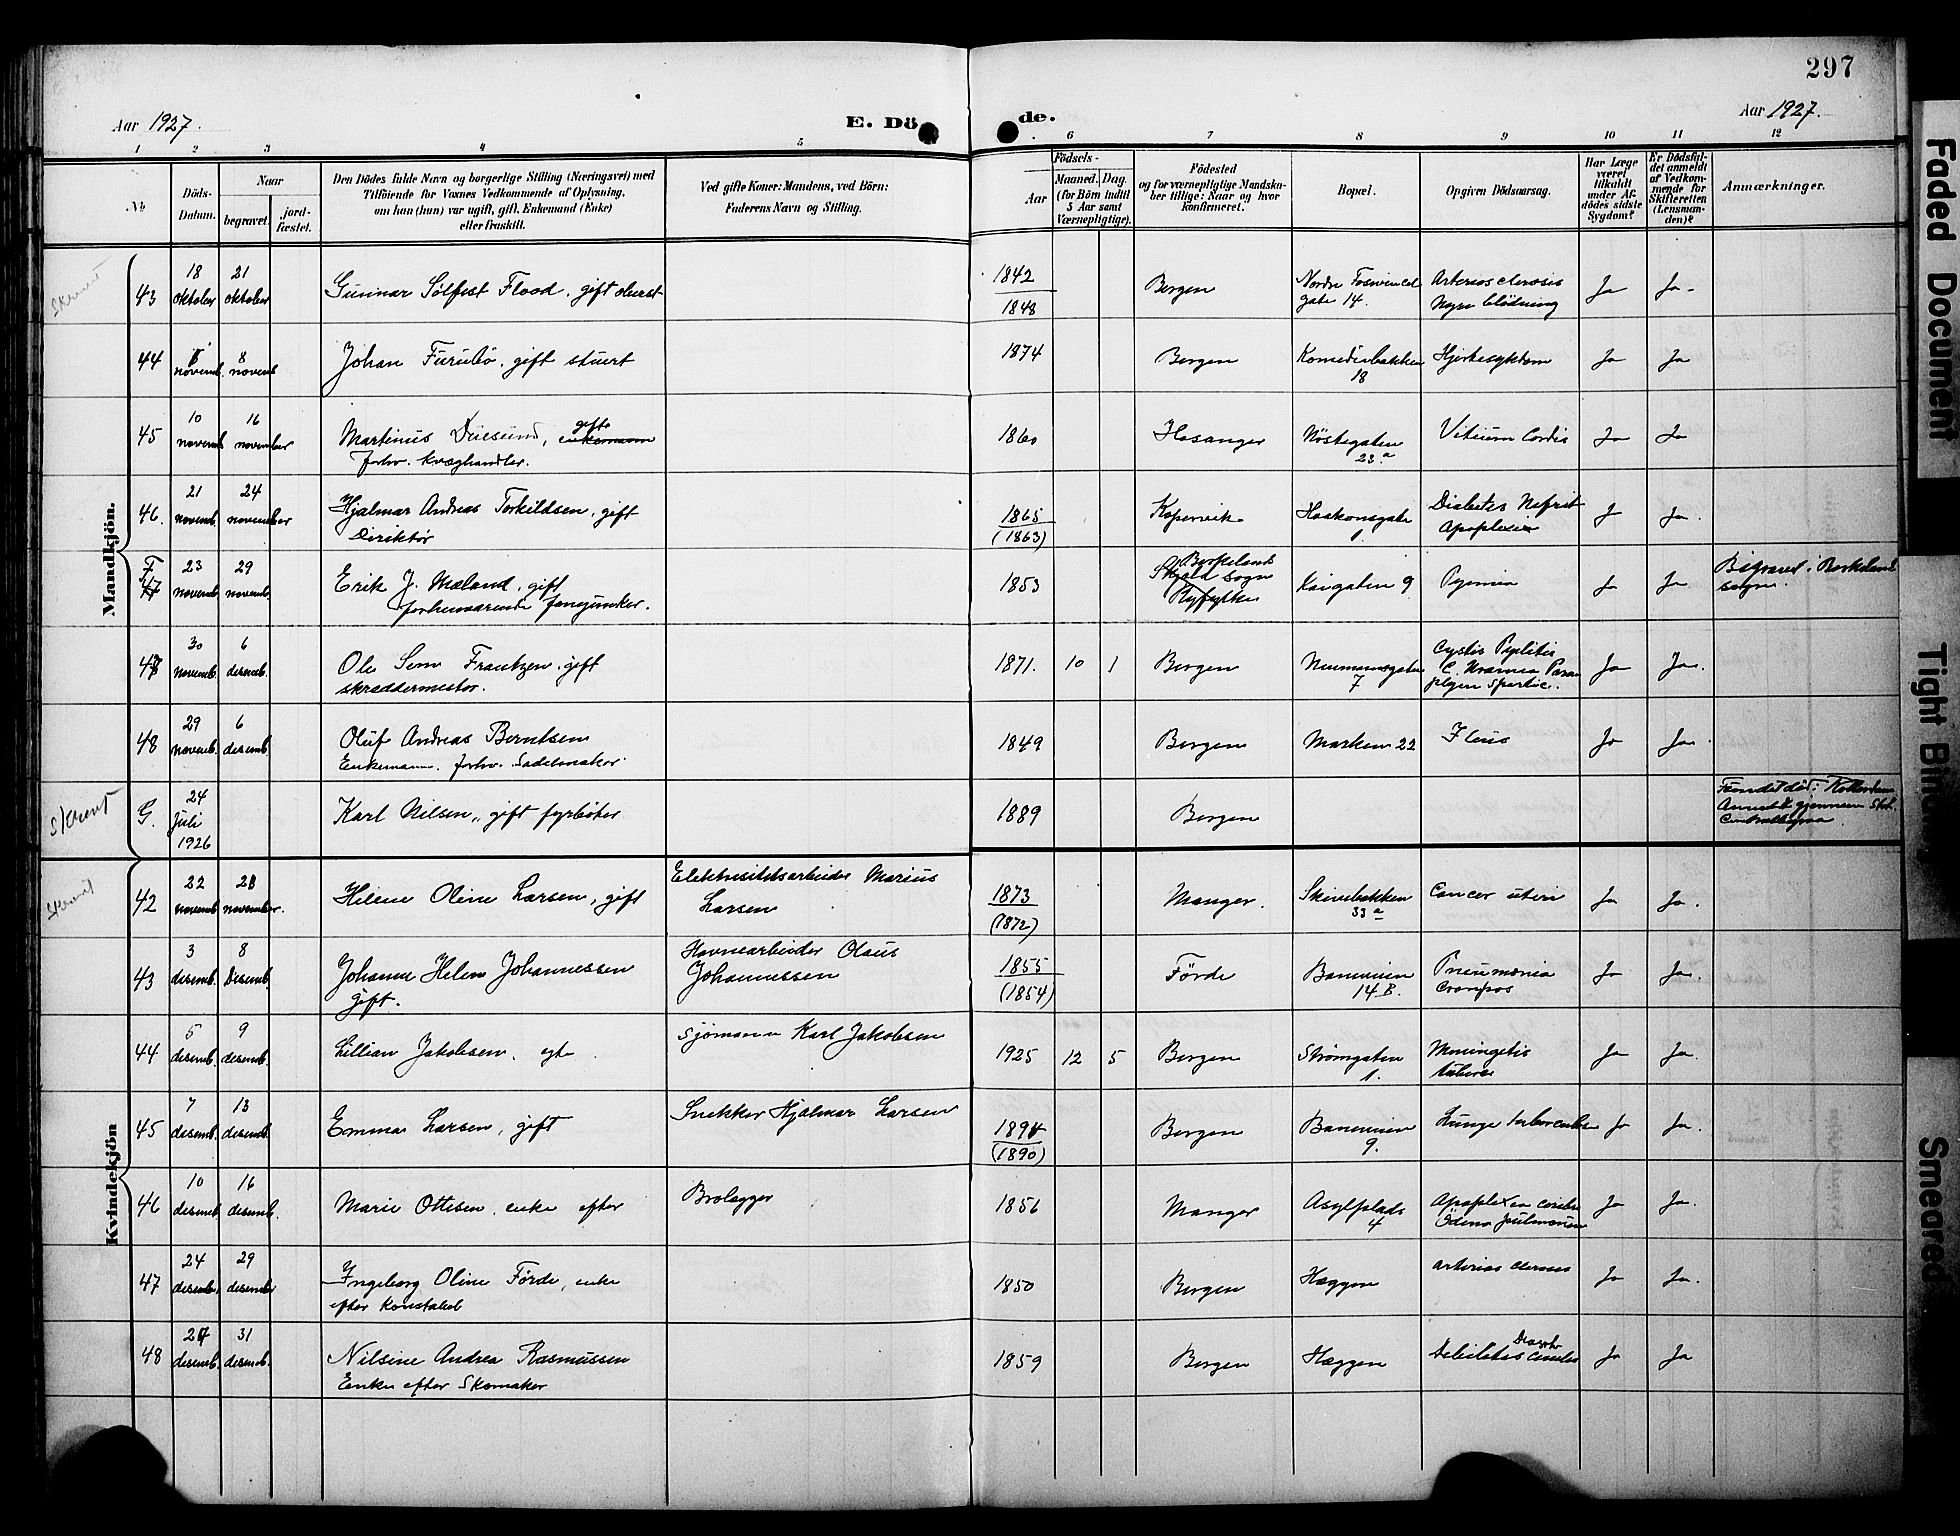 297
Aar 1927.
E. Döde.
Aar 1927.
1 2 3 4 5 6 7 8 9 10 11 12
No
Döds-Datum.
Naar
begravet.
jord-fæstet.
Den Dödes fulde Navn og borgerlige Stilling (Næringsvei) med
Tilföiende for Voxnes Vedkommende af Oplysning,
om han (hun) var ugift, gift, Enkemand (Enke)
eller fraskilt.
Ved gifte Koner: Mandens, ved Börn:
Faderens Navn og Stilling.
Födsels-
Aar
Maaned. Dag.
(for Börn indtil
5 Aar samt
Værnepligtige).
Födested
og for værnepligtige Mandska-
ber tillige: Naar og hvor
konfirmeret.
Bopæl.
Opgiven Dödsaarsag.
Har Læge
været
tilkaldt
under Af-
dödes sidste
Sygdom?
Er Dödsfal-
det anmeldt
af Vedkom-
mende for
Skifteretten
(Lensman-
den)?
Anmærkninger.
Mandkjön.
43 18 oktober 21 oktober Gunnar Sölfest Flood, gift oberst 1842 1848 Bergen Nordre gate 14. Arteriosclerosis Nyreblödning Ja Ja
44 novemb. 8 novemb Johan Furubö, gift stuert 1874 Bergen Komediebakken 18 Hjertesykdom Ja Ja
45 10 novemb 16 november Martinus Duesund, enkemann gift
forhv. kvæghandler. 1860 Hosanger Nöstegaten 23 a Vitium Cordis Ja Ja
46. 21 novemb. 24 november Hjalmar Andreas Torkildsen, gift
Direktör 1865 (1863) Kopervik Haakonsgate 1. Diabetes Nefrit Apoplexia J Ja.
F 47 23 novemb. 29 novemb. Erik J. Mæland, gift
forhenværende fanejunker. 1853 Skjold sogn Ryfylke Kaigaten 9 Pyemia Ja Ja Begravet i sogn.
47 30 novemb. 6 desemb. Ole Sem Frantzen, gift
skreddermester. 1871. 10 1 Bergen Neumannsgaten 7 Cystis Pyelitis Ja Ja.
48 29 novemb. 6 desemb. Oluf Andreas Berntsen
Enkemann. forhv. Sadelmaker 1849 Bergen Marken 22 Ileus Ja Ja.
skrevet
G. 24 Juli 1926 Karl Nilsen, gift fyrböter 1889 Bergen
Kvindekjön
42 22 novemb 28 november. Helene Oline Larsen, gift Elektrisitetsarbeider Marius
Larsen 1873 (1872) Manger. Skivebakken 33 a Cancer uteri Ja Ja.
43 3 desemb. 8 Desemb. Johanne Helene Johannessen
gift. Havnearbeider Olaus
Johannessen 1855 (1854) Förde Baneveien 14 B. Pneumonia Ja Ja.
44 5 desemb. 9 desemb. Lillian Jakobsen, egte Sjömann Karl Jakobsen 1925 12 5 Bergen Strömgaten 1. Meningitis Ja Ja.
45 7 desemb. 13 desemb. Emma Larsen, gift Snekker Hjalmar Larsen 1894 (1890) Bergen Baneveien 9. Lunge Ja Ja.
46 10 desemb. 16 desemb. Marie Ottesen, enke efter Brolegger 1856 Manger Asylplads 4 Ja Ja.
47 24 desemb. 29 desember Ingeborg Oline Förde, enke
efter Konstabel 1850 Bergen Hæggen Ja Ja.
48 desemb. 31 desemb. Nilsine Andrea Rasmussen
Enke efter Skomaker 1859 Bergen Hæggen Ja Ja
Faded Document
Tight Binding
Smeared